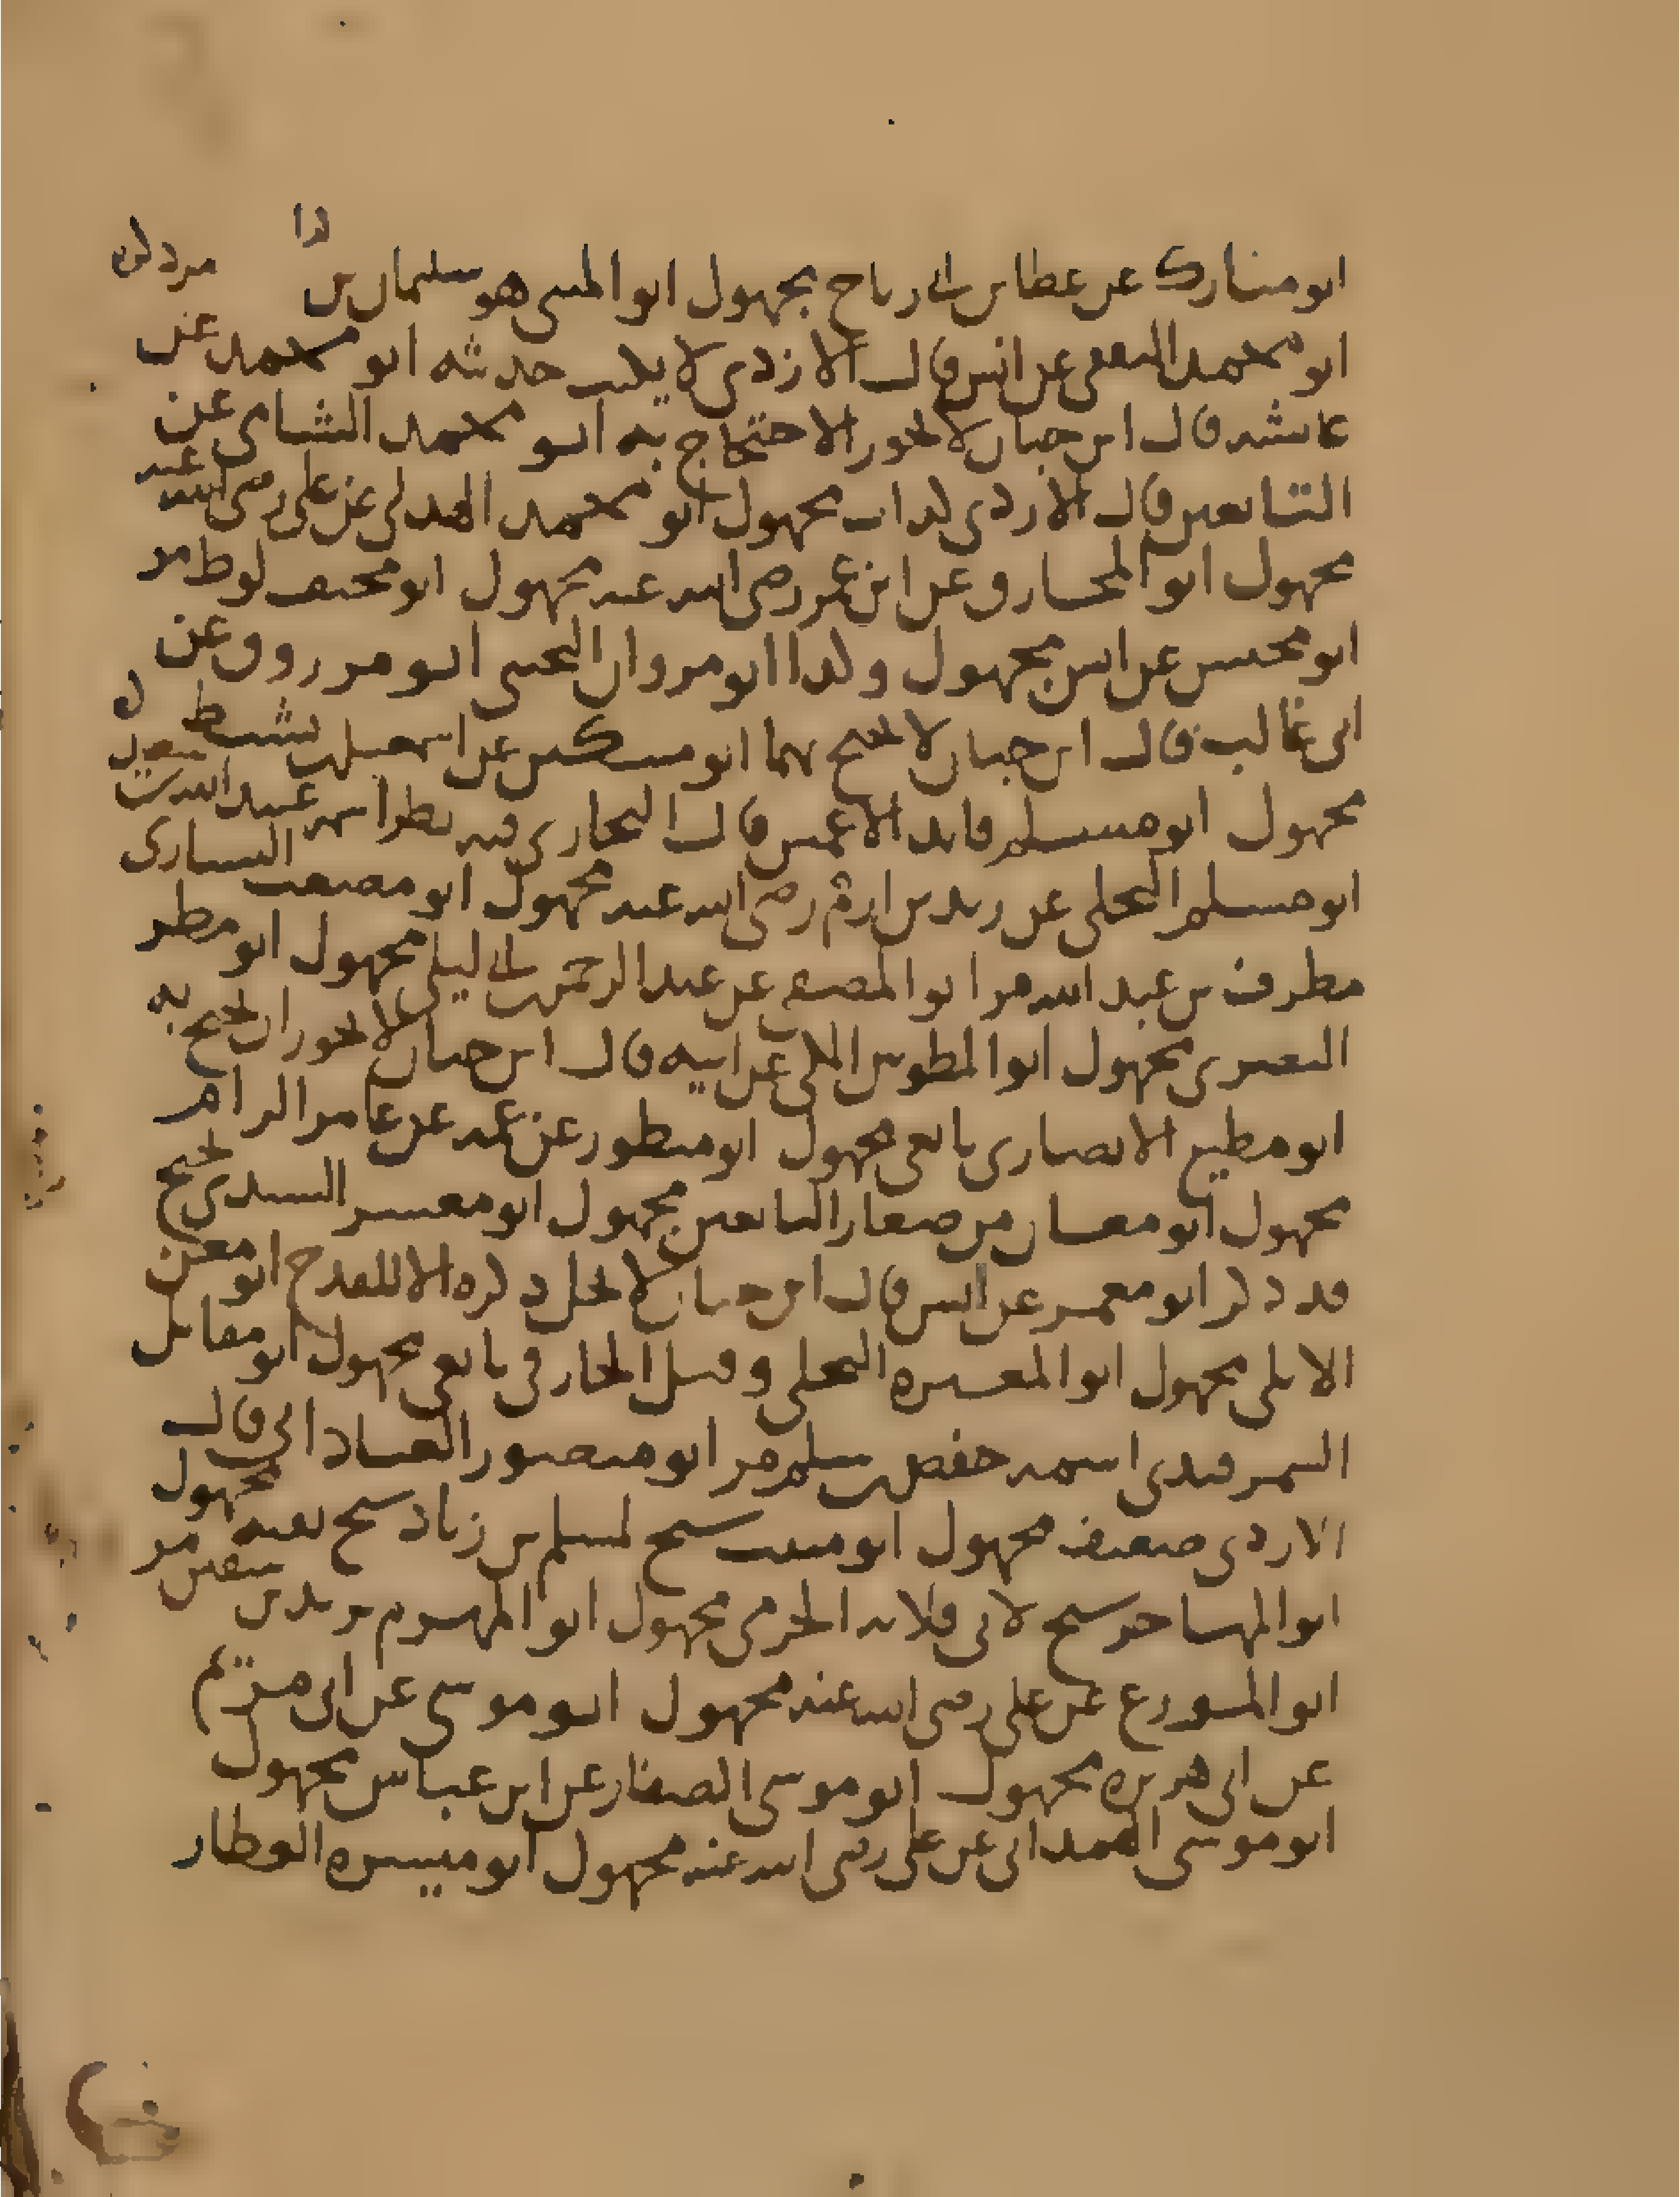 ابو مبارك عن عطا بن ابى رباح مجهول ابو المثنى هو سليمان بن
ابو محمد الثقفى عن انس قال الازدى لا يثبت حديثه ابو محمد عن
عائشه قال ابن حبان لا يجوز الاحتجاج به ابو محمد الشامى عن
التابعين قال الازدى كذاب مجهول ابو محمد الهذلى عن على رضى الله عنه
مجهول ابو المخارق عن ابن عمر رضى الله عنه مجهول ابو مخنف لوط مر
ابو مخيس عن انس مجهول وكذا ابو مروان ابو مرزوق عن
ابى غالب قال ابن حبان لا يحتج بهما ابو مسكين عن اسمعيل بن نشيط
مجهول ابو مسلم قايد الاعمش قال البخارى فيه نظر اسمه عبيد الله بن سعيد
ابو مسلم البجلى عن زيد بن ارقم رضى الله عنه مجهول ابو مصعب اليسارى
مطرف بن عبد الله مر ابو المصفى عن عبد الرحمن بن ابى ليلى مجهول ابو مطر
البصرى مجهول ابو المطوس المكى عن ابيه قال ابن حبان لا يجوز ان يحتج به
ابو مطيع الانصارى تابعى مجهول ابو منظور عن عمه عن عامر الرام
مجهول ابو معان من صغار التابعين مجهول ابو معشر السندى نجيح
قد ذكر ابو معمر عن انس قال ابن حبان لا يحل ذكره الا للقدح ابو معن
الايلى مجهول ابو المغيره البجلى وقيل الخارفى تابعى مجهول ابو مقاتل
السمرقندى اسمه حفص بن سلم مر ابو منصور قال
الازدى ضعيف مجهول ابو منيب شيخ لمسلم بن زياد شيخ بقيه مجهول
ابو المهاجر شيخ لابى قلابه الجرمى مجهول ابو المهزم يزيد بن سفين مر
ابو المورع عن على رضى الله عنه مجهول ابو موسى عن ابى مريم
عن ابى هريره مجهول ابو موسى الصفار عن ابن عباس مجهول
ابو موسى الهمدانى عن على رضى الله عنه مجهول ابو ميسره العطار